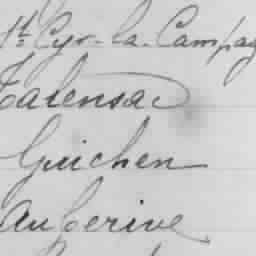 St. Cyr-la-Campag
Talensac
Guichen
Auberive